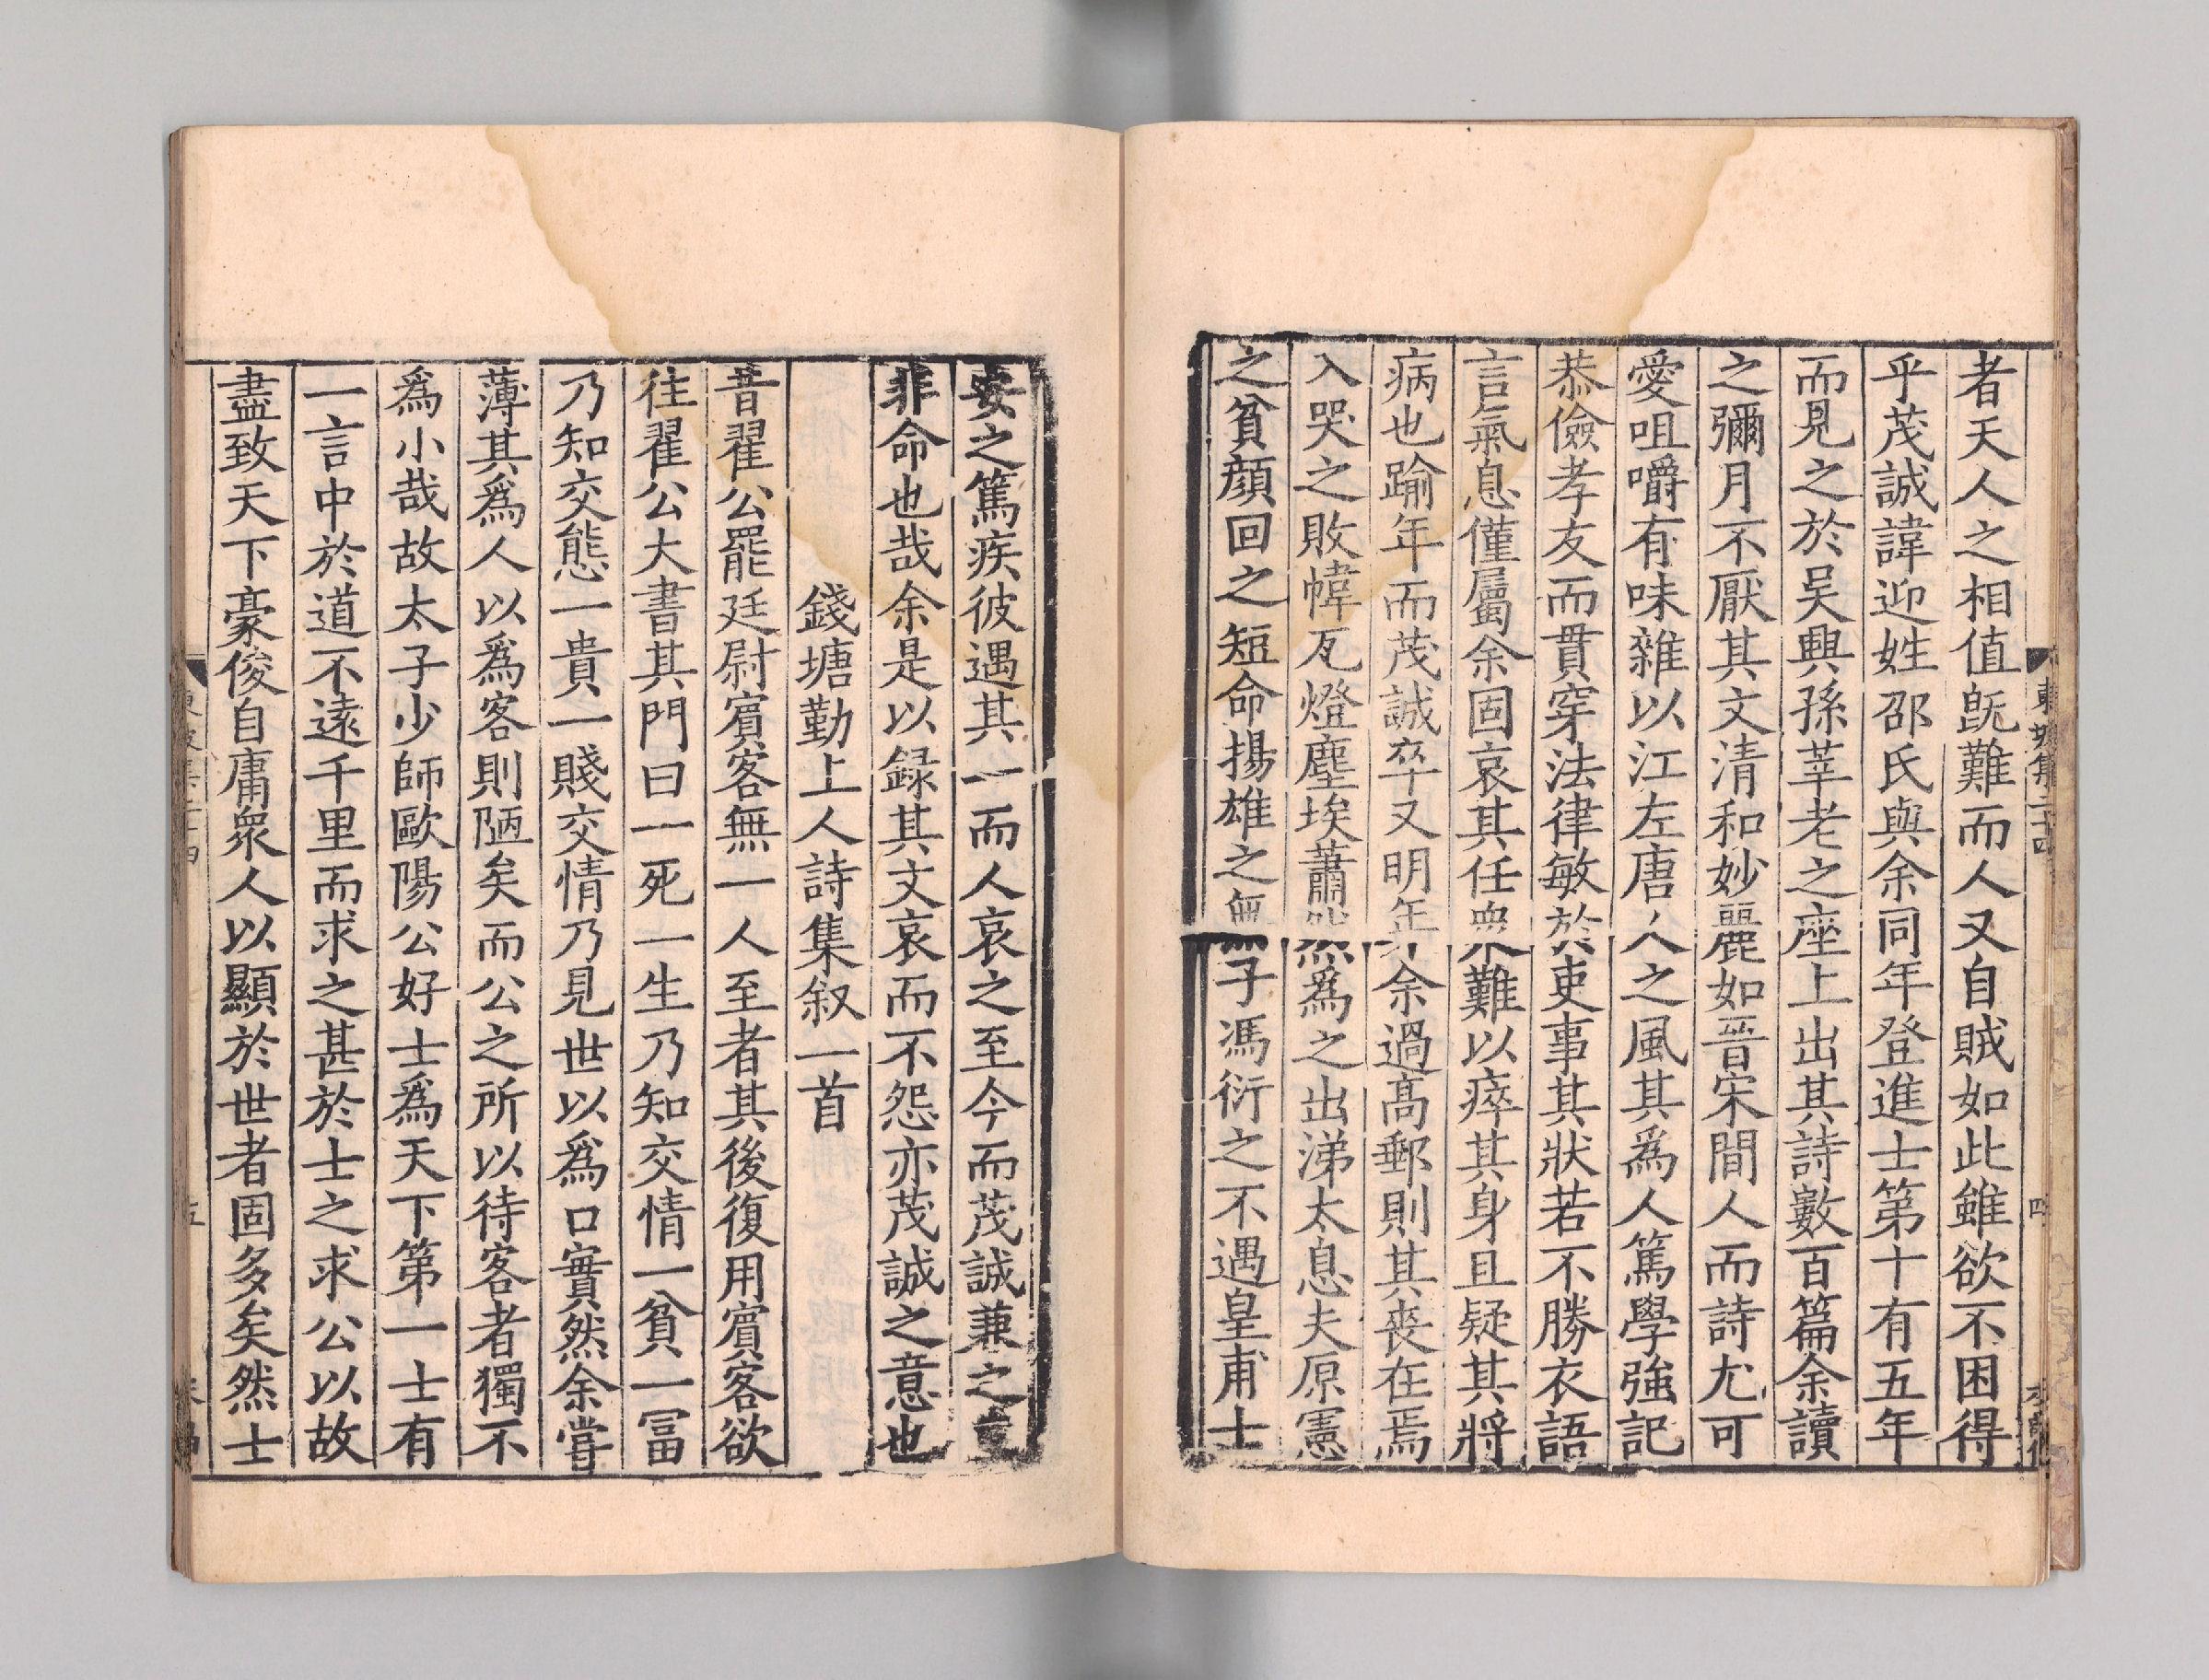 者天人之相值旣難而人又自賊如此雖欲不困得
乎茂誠諱迎姓邵氏與余同年登進士第十有五年
而見之於吴興孫莘老之座上出其詩數百篇余讀
之彌月不厭其文清和妙麗如晉宋間人而詩尤可
愛咀嚼有味雜以江左唐人之風其爲人篤學強記
恭儉孝友而貫穿法律敏於吏事其狀若不勝衣語
言氣息僅屬余固哀其任衆難以瘁其身且疑其將
病也踰年而茂誠卒又明年余過髙郵則其喪在焉
入哭之敗幃瓦燈塵埃蕭然爲之出涕太息夫原憲
之貧顔回之短命揚雄之無子馮衍之不遇皇甫士
安之篤疾彼遇其一而人哀之至今而茂誠兼之豈
非命也哉余是以録其文哀而不怨亦茂誠之意也
錢塘勤上人詩集叙一首
昔翟公罷廷尉賔客無一人至者其後復用賔客欲
往翟公大書其門曰一死一生乃知交情一貧一冨
乃知交態一貴一賤交情乃見世以爲口實然余嘗
薄其爲人以爲客則陋矣而公之所以待客者獨不
爲小哉故太子少師歐陽公好士爲天下第一士有
一言中於道不遠千里而求之甚於士之求公以故
盡致天下豪俊自庸衆人以顯於世者固多矣然士
東坡集二十四
四
五